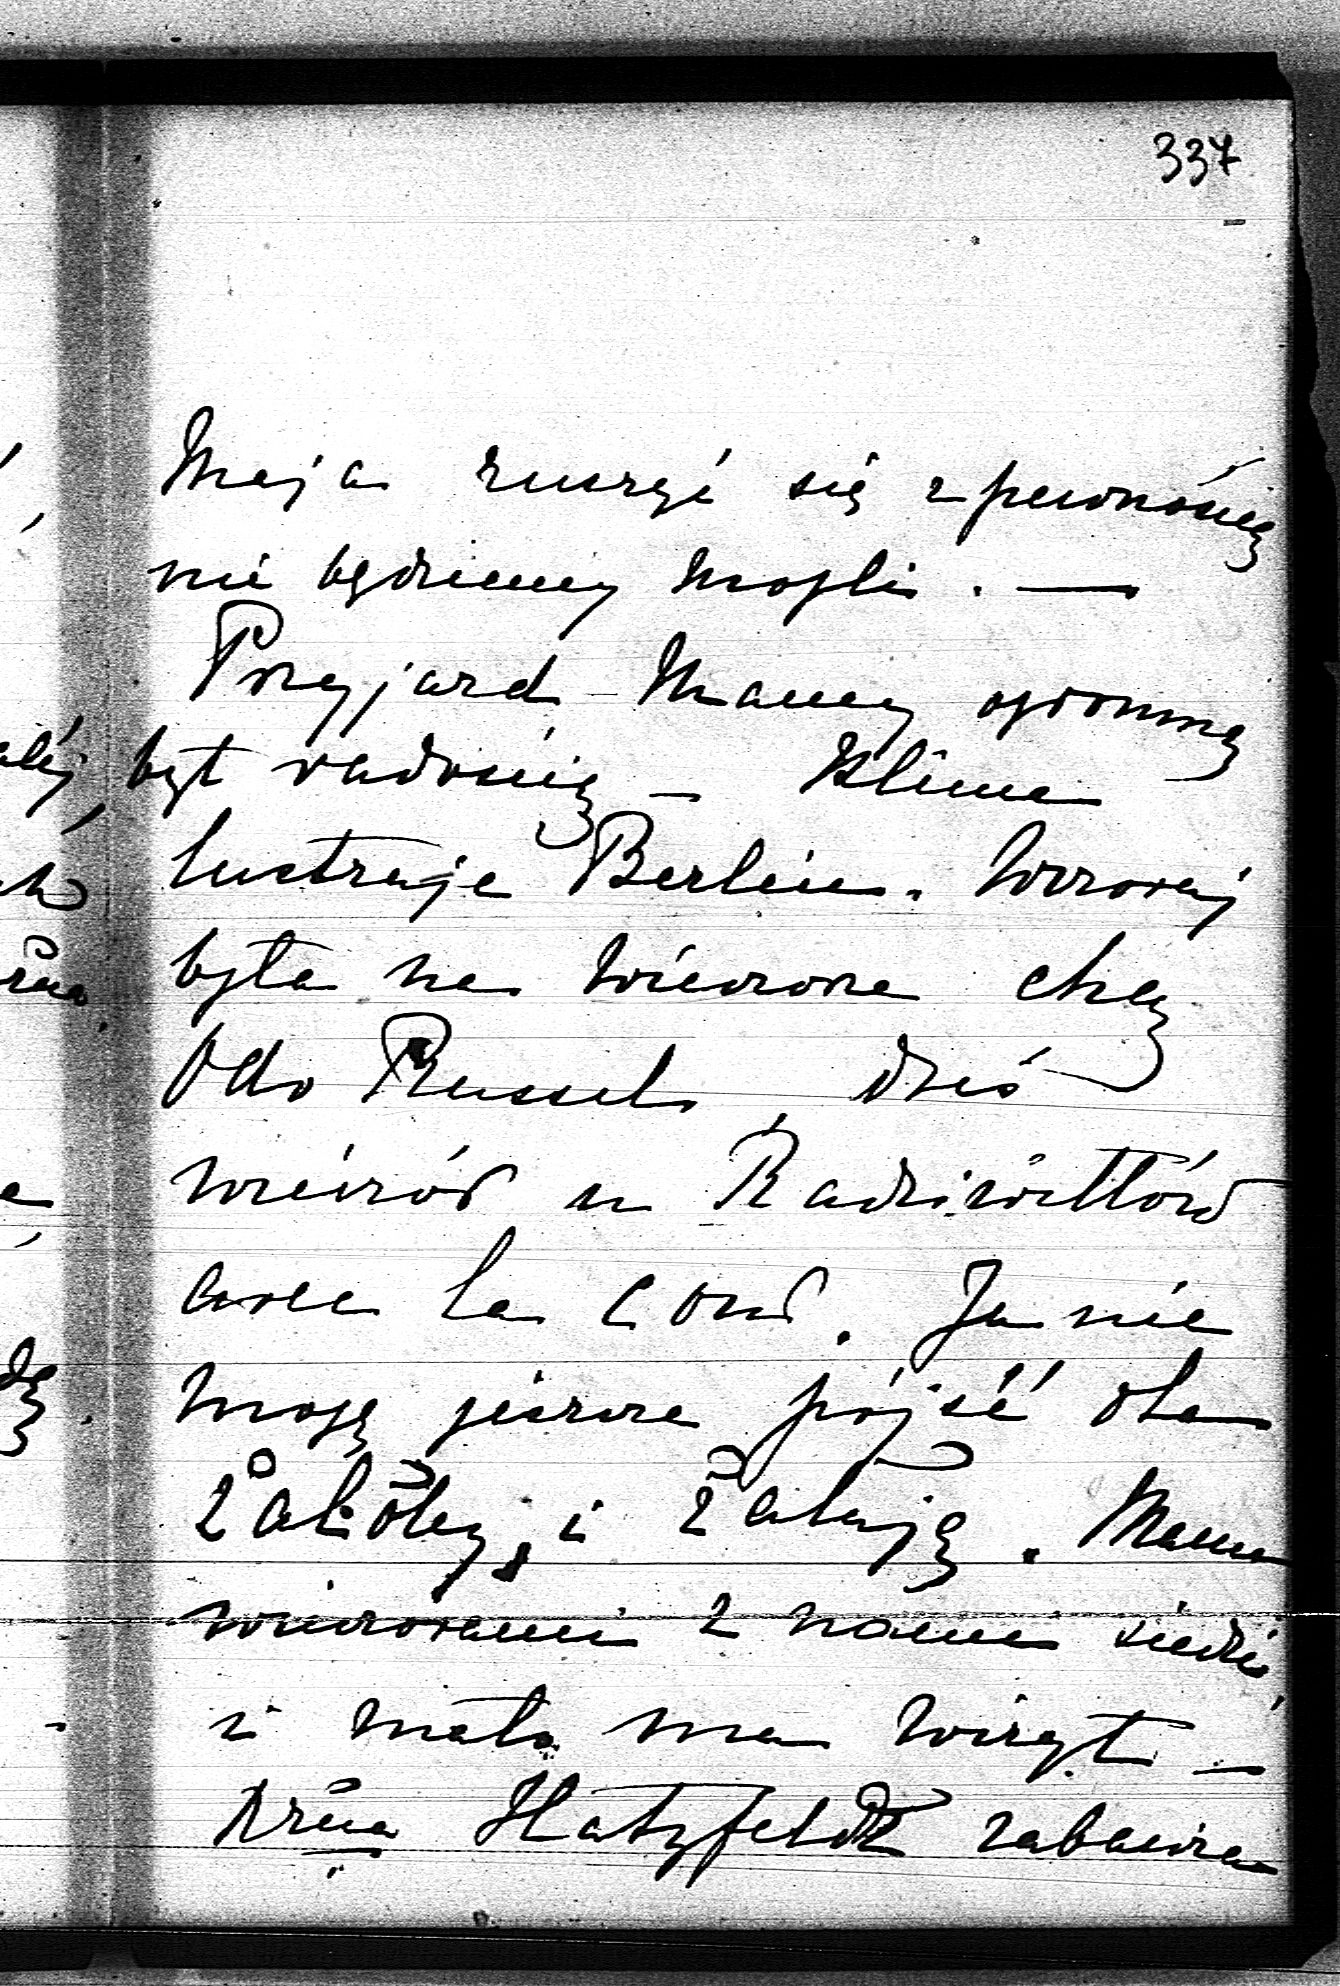 337
Maja ruszyć się z pewnością
nie będziemy mogli. —
Przyjazd Mamy ogromną
był radością — Klima
lustruje Berlin. Wczoraj
była na wieczorze chez
Odo Russel, dziś
wieczór u Radziwiłłów
avec la cour. Ja nie
mogę jeszcze pójść dla
żałoby, i żałuję. Mama
wieczorami z nami siedzi,
i mało ma wizyt —
Xżna Hatzfeldt zabawna